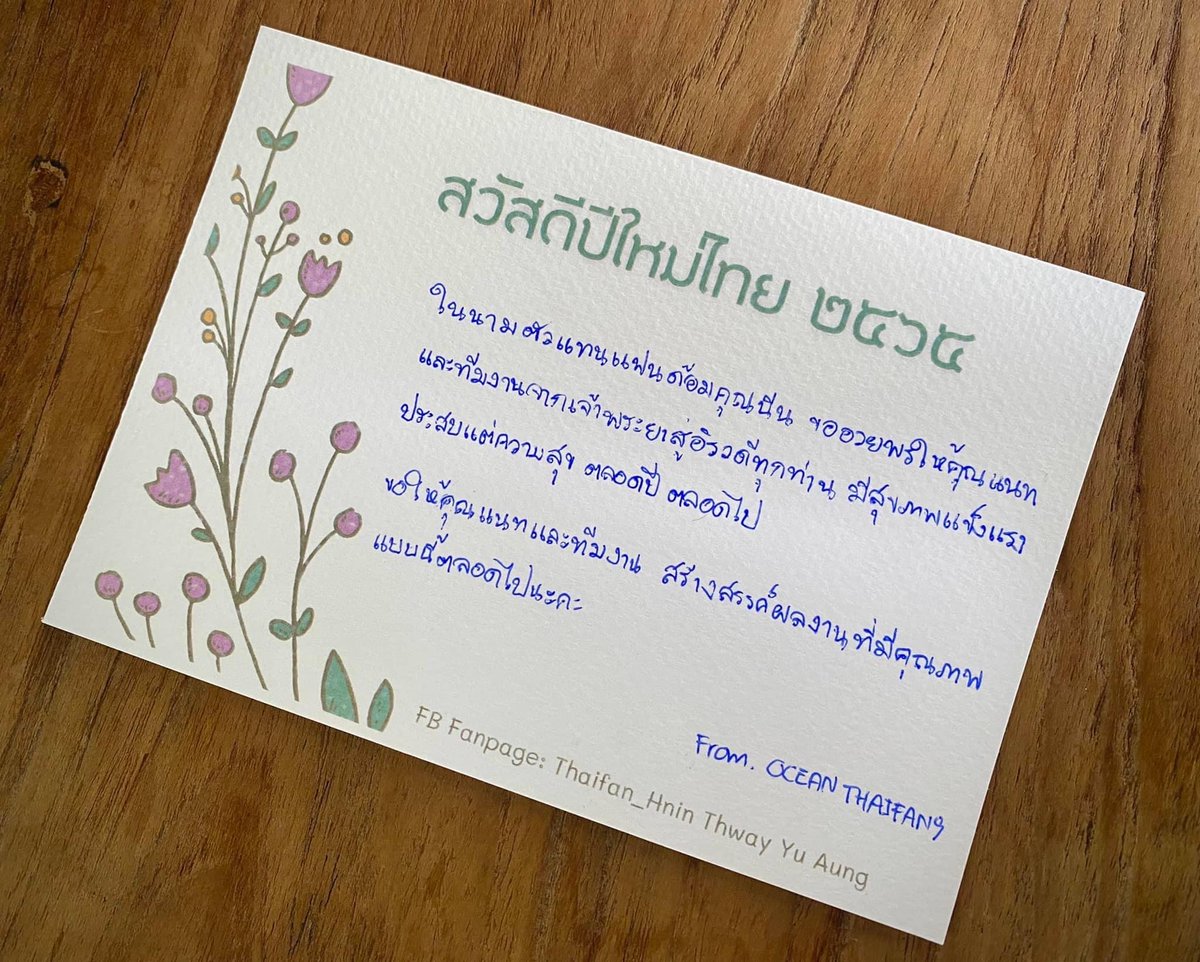 สวัสดีปีใหม่ไทย ๒๕๖๕
ในนามตัวแทนแฟนด้อมคุณนีน ขออวยพรให้คุณแนท
และทีมงานจากเจ้าพระยาสู่อิรวดีทุกท่าน มีสุขภาพแข็งแรง
ประสบแต่ความสุข ตลอดปี ตลอดไป
ขอให้คุณแนทและทีมงาน สร้างสรรค์ผลงานที่มีคุณภาพ
แบบนี้ตลอดไปนะคะ
From. OCEAN THAIFANG
FB Fanpage: Thaifan_Hnin Thway Yu Aung